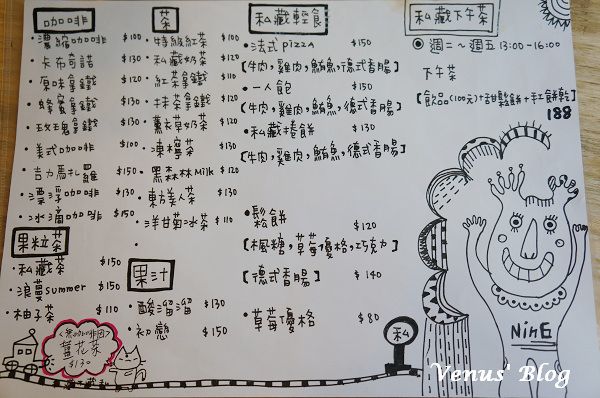 咖啡
濃縮咖啡 $100
卡布奇諾 $130
原味拿鐵 $120
蜂蜜拿鐵 $130
玫瑰拿鐵 $130
美式咖啡 $100
吉力馬札羅 $150
漂浮咖啡 $130
冰滴咖啡 $150
果粒茶
私藏茶 $150
浪蔓summer $150
柚子茶 $110
<無咖啡因>
薑花茶
$130
茶
特級紅茶 $100
私藏奶茶 $120
紅茶拿鐵 $110
抹茶拿鐵 $120
薰草奶茶 $120
凍檸茶 $130
黑森林Milk $120
東方美人茶 $130
洋甘菊冰茶 $110
果汁
酸溜溜 $130
初戀 $150
私藏輕食
法式pizza $150
[牛肉,雞肉,鮪魚,德式香腸]
一人飽 $150
[牛肉,雞肉,鮪魚,德式香腸]
私藏捲餅 $130
[牛肉,雞肉,鮪魚,德式香腸]
鬆餅 $120
[楓糖,草莓優格,巧克力]
[德式香腸] $140
草莓優格 $80
私
私藏下午茶
週二~週五 13:00-16:00
下午茶
[飲品(100元)+甜鬆餅+手工餅乾]
188
NiNG
Venus' Blog